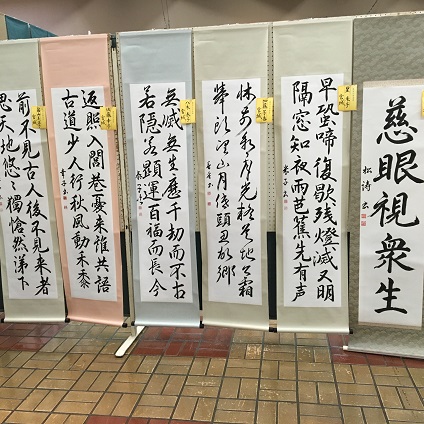 慈眼視衆生
早蛩啼復歇残燈滅又明
隔窓知夜雨芭蕉先有声
牀前看月光疑是地上霜
擧頭望山月低頭思故郷
無滅無生歴千劫而不古
若隠若顕運百福而長今
返照入閭巷憂来誰共語
古道少人行秋風動禾黍
前不見古人後不見来者
天地悠々獨愴然涕下